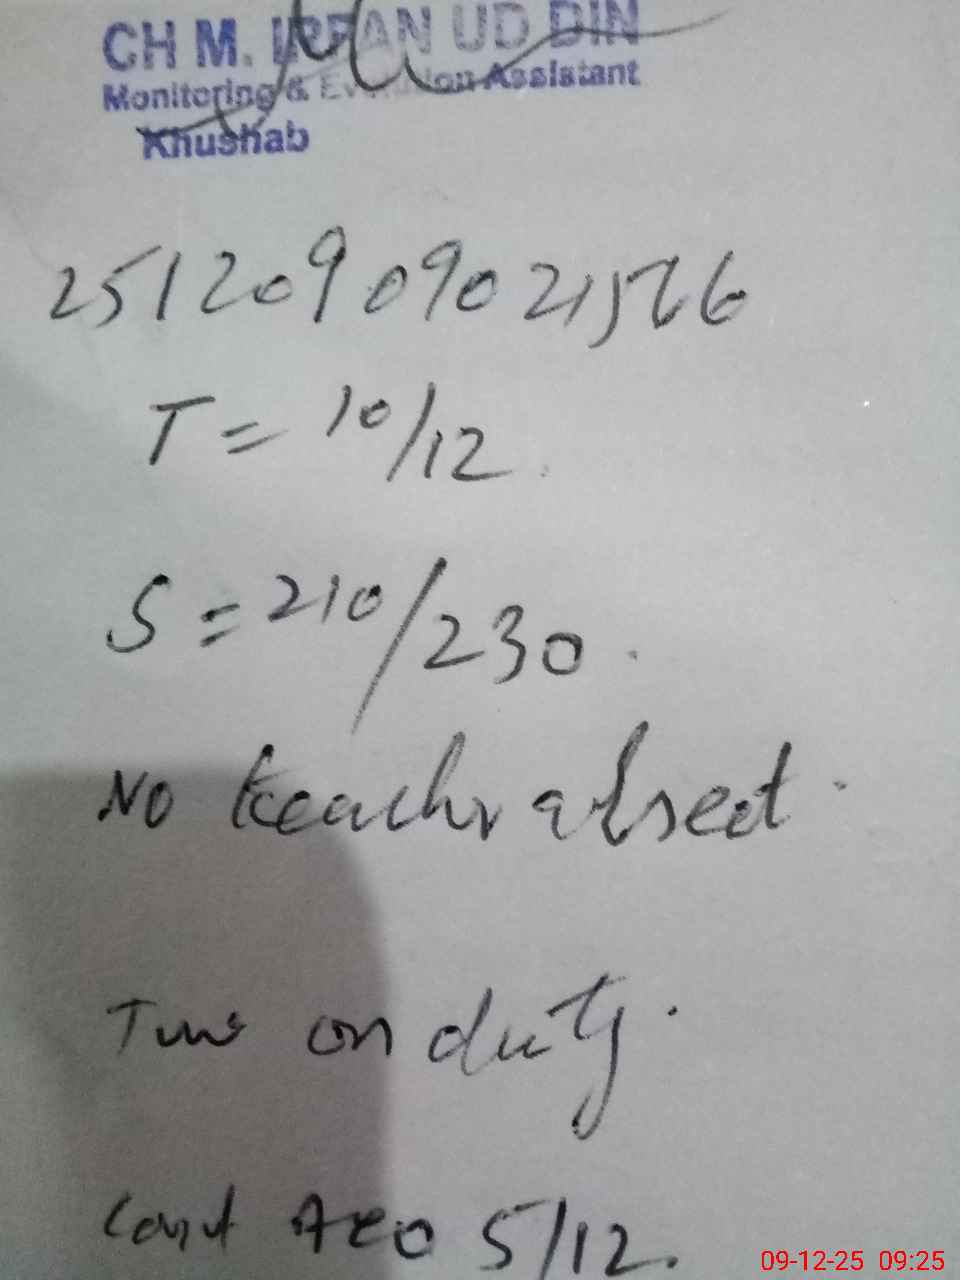 CH M. IRFAN UD DIN
Monitoring & Evaluation Assistant
Khushab
251209090211566
T = 10/12.
S = 210/230.
No teacher absent.
Two on duty.
AEO 5/12.
09-12-25 09:25